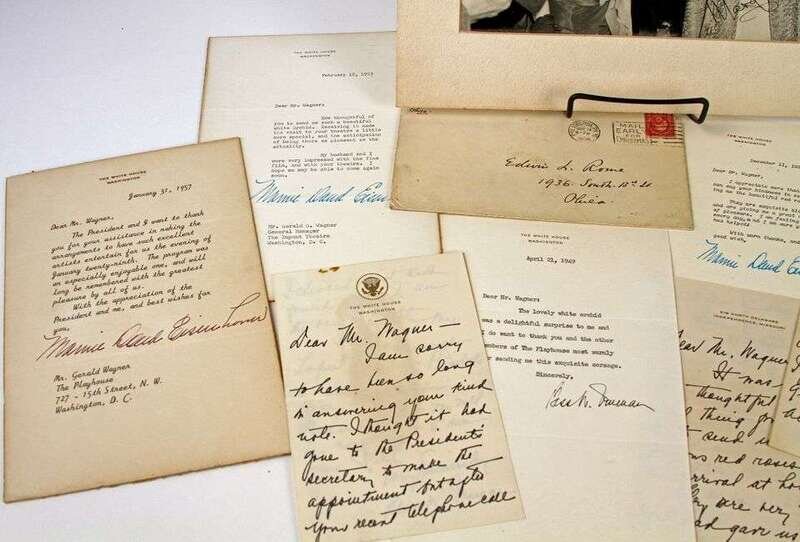 THE WHITE HOUSE
WASHINGTON
January 31, 1957
Dear Mr. Wagner,
The President and I want to thank
you for your assistance in making the
arrangements to have such excellent
artists entertain for us the evening of
January twenty-ninth. The program was
an especially enjoyable one, and will
long be remembered with the greatest
pleasure by all of us.
With the appreciation of the
President and me, and best wishes for
you,
Mamie Doud Eisenhower
Mr. Gerald Wagner
The Playhouse
727 - 15th Street, N. W.
Washington, D. C.
THE WHITE HOUSE
WASHINGTON
February 18,
Dear Mr. Wagner:
How thoughtful of
you to send me such a beautiful
white orchid. Receiving it made
the visit to your theatre a little
more special, and the anticipation
of being there as pleasant as the
actuality.
My husband and I
were very impressed with the fine
film, and with your theatre. I
hope we may be able to come again
soon.
Mamie Doud Eisen
Mr. Gerald G. Wagner
General Manager
The Dupont Theatre
Washington, D. C.
MAIL
EARLY
FOR
Edwin L. Rome
1936 South
Phila
THE WHITE HOUSE
WASHINGTON
Dear Mr. Wagner-
I am sorry
to have been so long
in answering your kind
note. I thought it had
gone to the President's
secretary to make the
appointment but after
your recent telephone call
THE WHITE HOUSE
WASHINGTON
April 21, 1949
Dear Mr. Wagner:
The lovely white orchid
was a delightful surprise to me and
I do want to thank you and the other
members of The Playhouse most warmly
for sending me this exquisite corsage.
Sincerely,
Bess W. Truman
THE WHITE HOUSE
WASHINGTON
December 11,
Dear Mr. Wagner:
I appreciate more than
With warm thanks, and
good wish,
Mamie Doud Eisen
219 NORTH DELAWARE
INDEPENDENCE, MISSOURI
Dear Mr. Wagner
It was
thoughtful
thing for
send
red roses
arrival at ho
are very
gave us